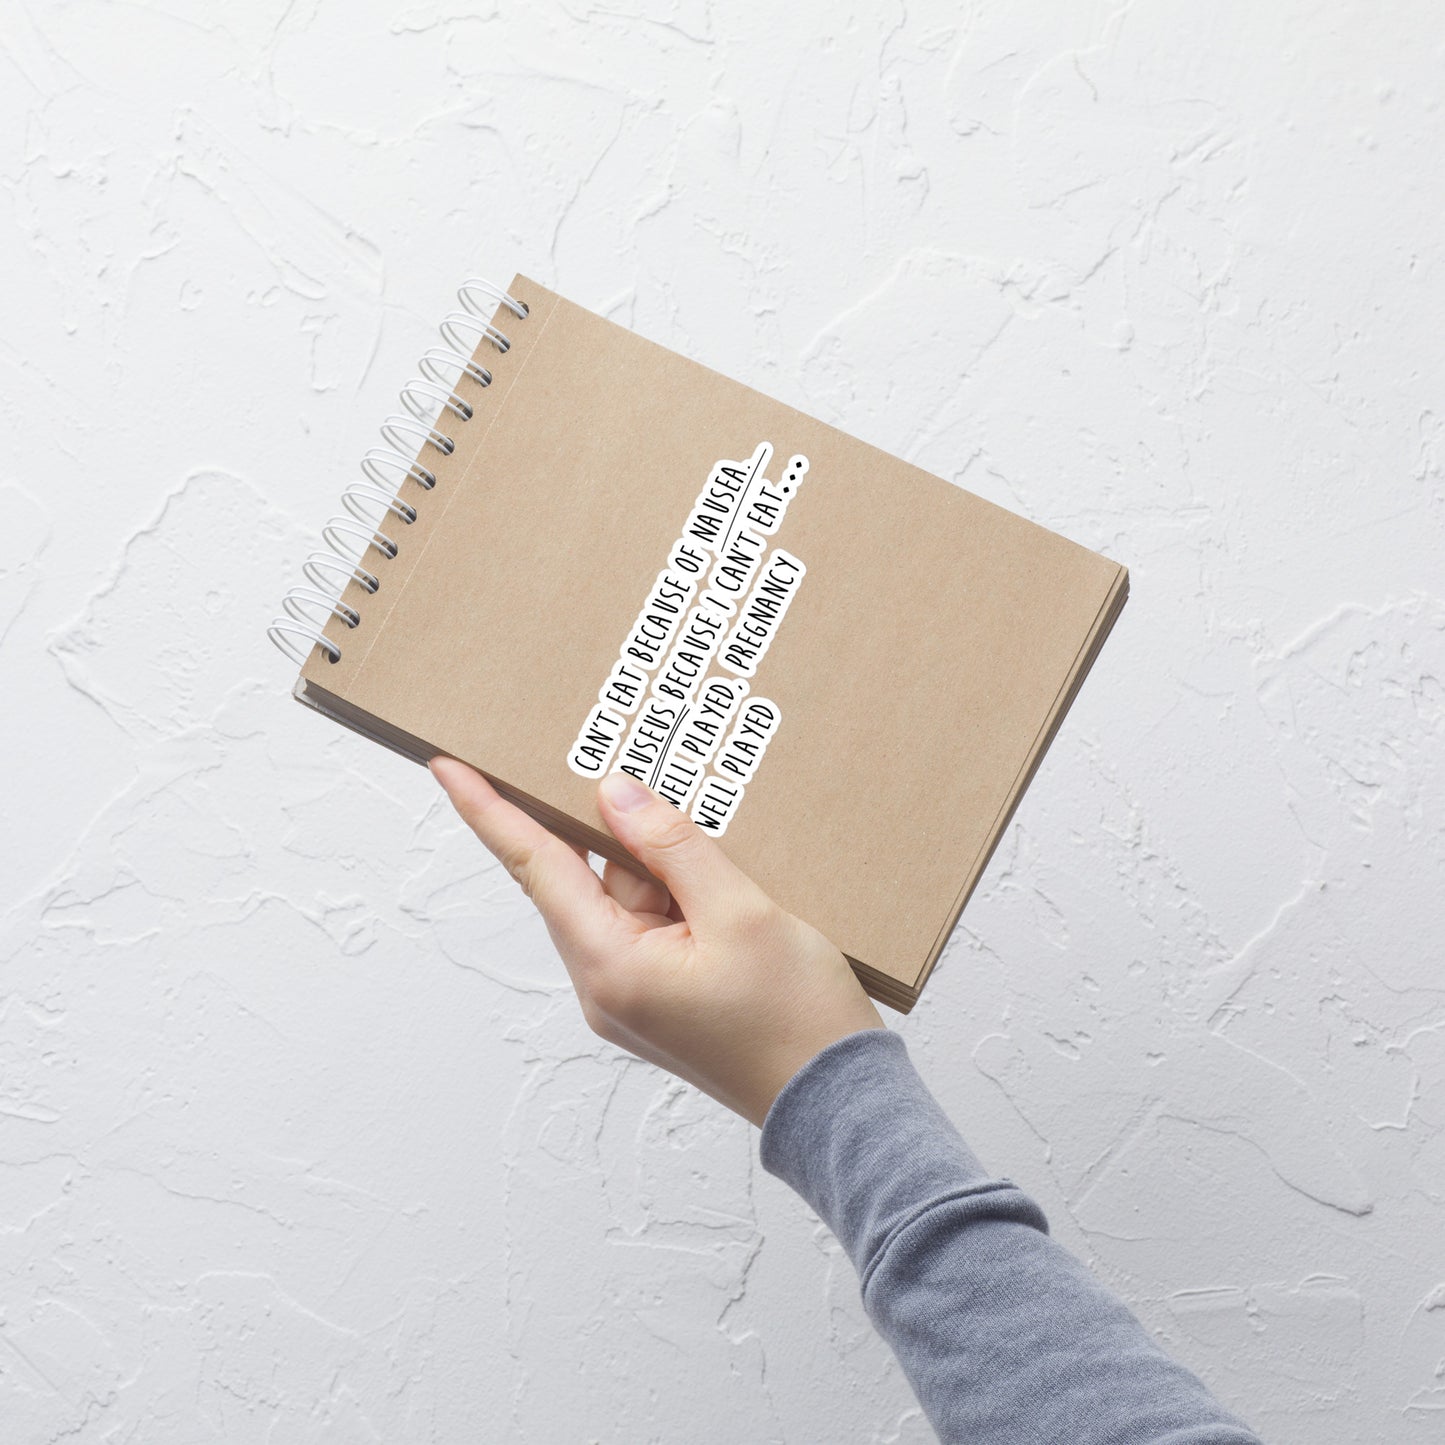 CAN'T EAT BECAUSE OF NAUSEA.
AUSEUS BECAUSE I CAN'T EAT...
WELL PLAYED, PREGNANCY
WELL PLAYED